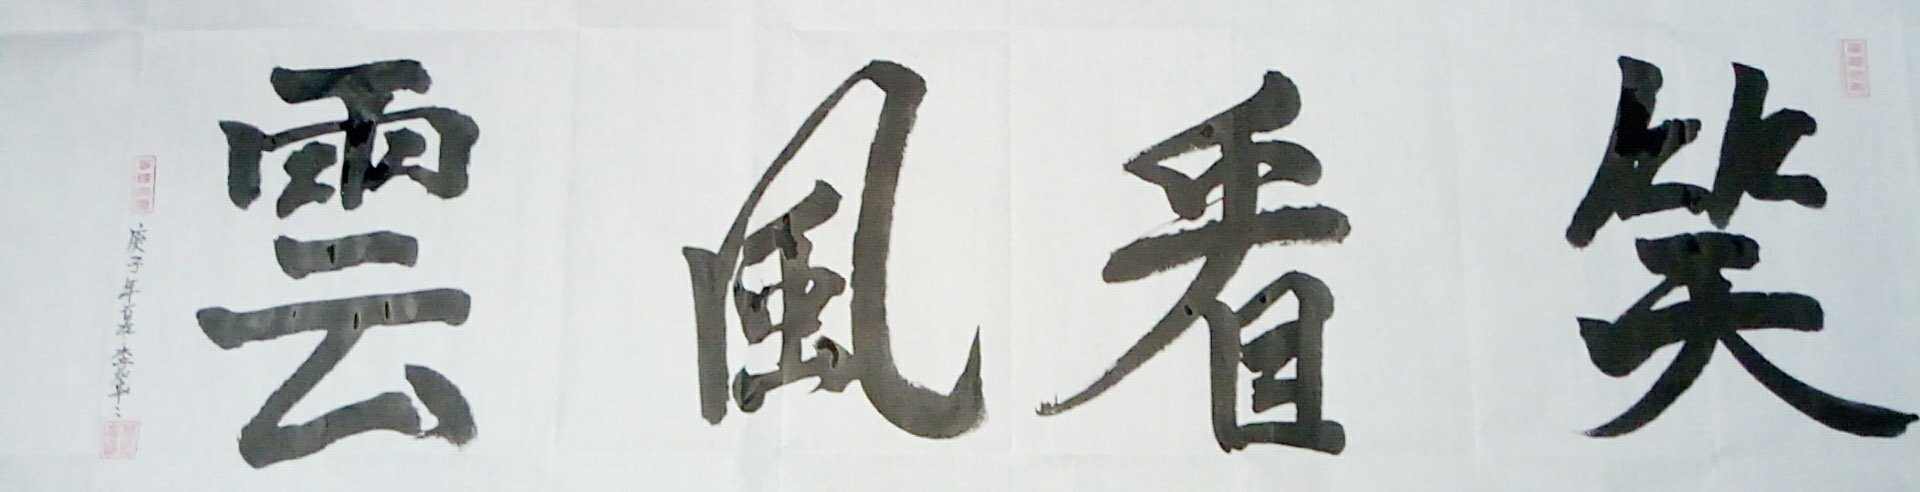 笑看風雲
庚子年